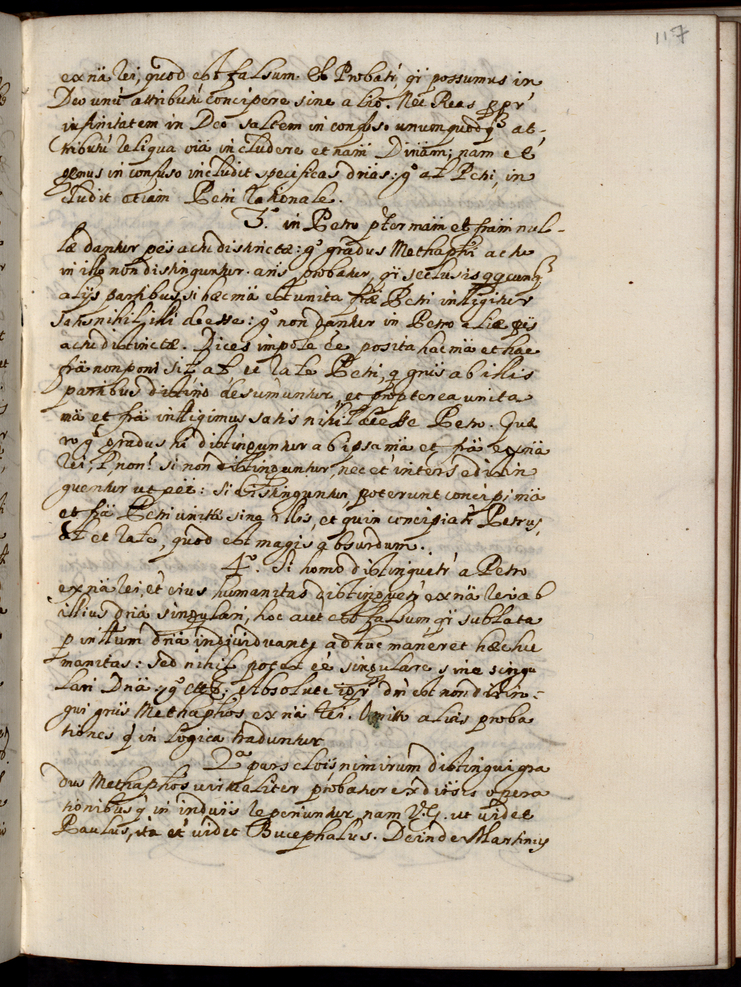 117
ex nã rei, quod est falsum. Et Probatr̃, qĩ possumus in
Deo unũ attributũ concipere sine alio. Nec Reas
infinitatem in Deo saltem in confuso unumquodq̃ at-
tributũ reliqua via includere etnam Divinam; nam et
genus in confuso includit specificas drias: gº at Petri, in
cludit etiam Petri rationale.
3.º in Petro pter mãm et frãm nul-
læ dantur peš actu distinctæ: gº gradus Methaphi actu
in illo non distinguntur. ans probatur, qĩ seclusis qqcunq̃
alijs partibus si hæc mã est unita fræ Petri intligitur
satis nihil illi deesse: gº non dantur in Petro aliæ peš
actu distinctæ. Dices impole ee posita hac mã et hac
frã non poni sit at et rale Petri, q gnis ab illis
partibus distino desumuntur, et propterea unita
mã et frã intligimus satis nihil deesse Petro. Quæ
ro gº gradus hi distinguntur ab ipsa mã et frã ex nã
rei, l, non? si non distinguntur, nec et inter se distin
guentur ut peš: si distinguntur, poterunt concipi mã
et frã Petri unitæ sine illis, et quin concipiatr̃ Petrus,
at et rale, quod est magis absurdum.
4.º Si homo distinguetr̃ a Petro
ex nã rei, et eius humanitas distinguetr̃ ex nã rei ab
illius driã singulari, hoc aut est falsum qĩ sublata
p intllum driã individuante adhuc maneret hæc hu
manitas: sed nihil potest ee singulare sine singu
lari Driã: gº etc. Absolute dri est non distin-
gui gnis Methaphos ex nã rei. Omitto alias proba
tiones q̃ in logica traduntur.
2.ª pars clois nimirum distingui gra
dus Methaphos virtualiter probatur ex divsis opera
tionibus q̃ in induis reperiuntur, nam V.G. ut videt
Paulus, ita et videt Bucephalus. Deinde Martinus